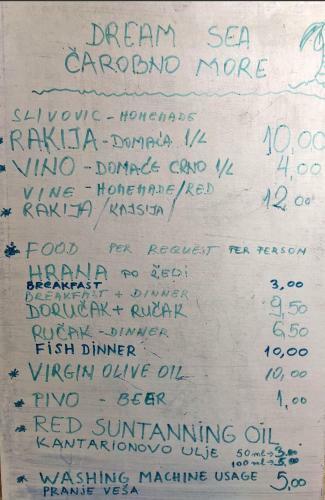 DREAM SEA
ČAROBNO MORE
SLIVOVIC - HOMEMADE
* RAKIJA - DOMAĆA 1/L 10,00
* VINO - DOMAĆE CRNO 1/L 4,00
VINE - HOMEHADE/RED
* RAKIJA /KAJSIJA/ 12,00
* FOOD PER REQUEST PER PERSON
HRANA PO ŽELJI
BREAKFAST 3,00
BREAKFAST + DINNER
DORUČAK + RUČAK 9,50
RUČAK - DINNER 6,50
FISH DINNER 10,00
* VIRGIN OLIVE OIL 10,00
* PIVO - BEER 1,00
* RED SUNTANNING OIL
KANTARIONOVO ULJE 50 ml → 3,00
100 ml → 5,00
* WASHING MACHINE USAGE 5,00
PRANJE VEŠA